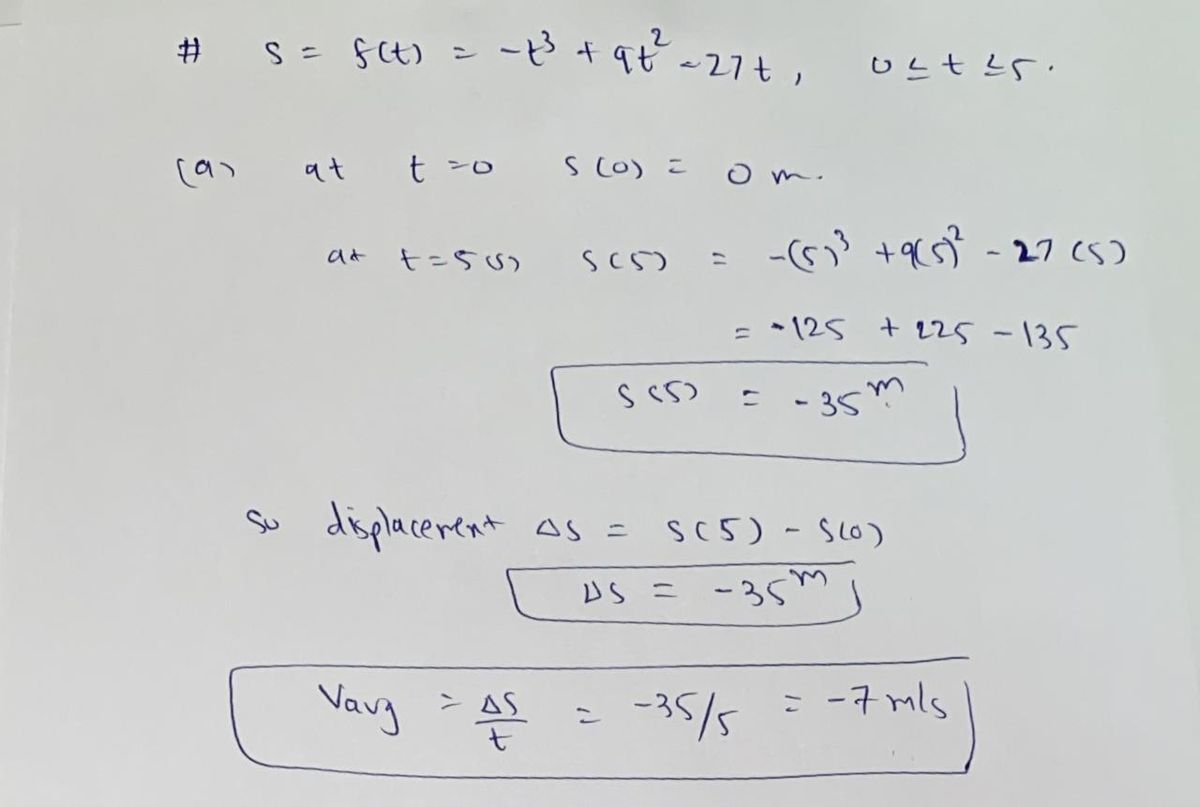 # s = f(t) = -t³ + 9t² - 27t, 0 ≤ t ≤ 5.
(a) at t = 0 s(0) = 0 m.
at t = 5(s) s(5) = -(5)³ + 9(5)² - 27(5)
= -125 + 225 - 135
s(5) = -35 m
so displacement Δs = s(5) - s(0)
Δs = -35 m
Vavg = Δs/t = -35/5 = -7 m/s